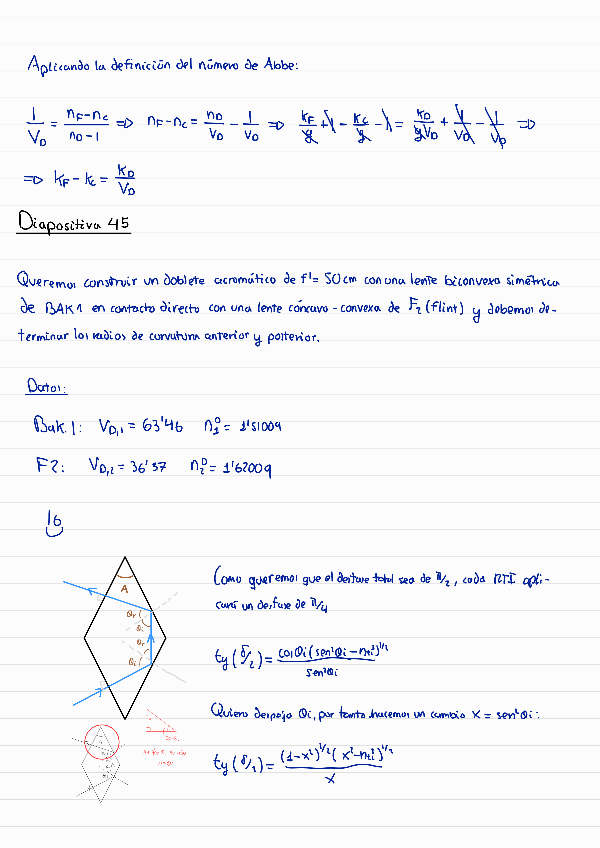 Aplicando la definición del número de Abbe:
1/V_D = (n_F-n_C)/(n_D-1) => n_F-n_C = n_D/V_D - 1/V_D => k_F/g + 1 - k_C/g - 1 = k_D/(g V_D) + 1/V_D - 1/V_D =>
=> k_F - k_C = k_D/V_D
Diapositiva 45
Queremos construir un doblete acromático de f' = 50 cm con una lente biconvexa simétrica
de BAK1 en contacto directo con una lente cóncavo-convexa de F2 (flint) y debemos de-
terminar los radios de curvatura anterior y posterior.
Datos:
Bak.1: V_D,1 = 63'46 n_1^D = 1'51009
F2: V_D,2 = 36'37 n_2^D = 1'62009
16
Como queremos que el desfase total sea de π/2, cada RTI apli-
cará un desfase de π/4
A
θr
θi
θr
θi
tg(δ/2) = cosθi(sen²θi - nti²)^1/2 / sen²θi
Quiero despejo θi, por tanto hacemos un cambio x = sen²θi:
tg(δ/2) = (1-x²)^1/2 (x²-nti²)^1/2 / x